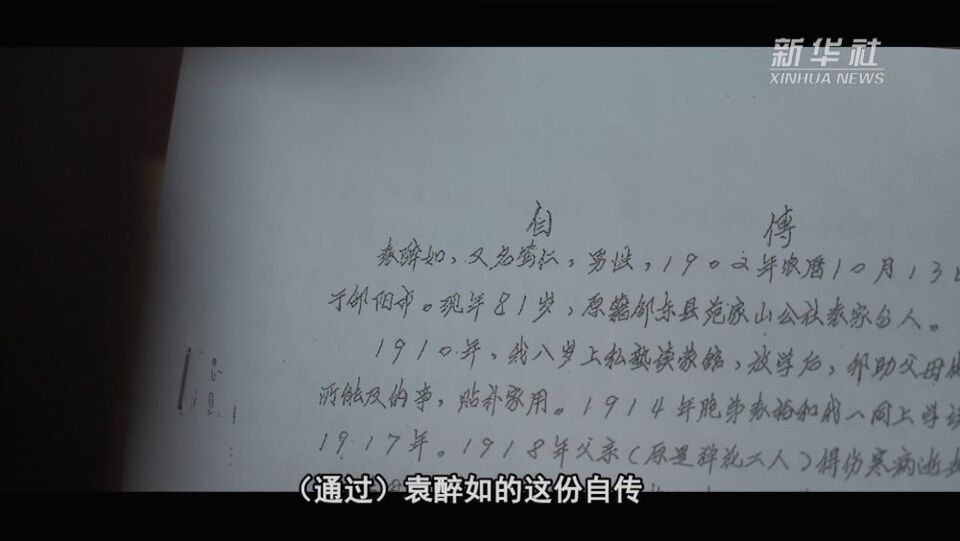 新华社
XINHUA NEWS
自 传
袁醉如，又名笃仁，男性，1902年农历10月13日
于邵阳市。现年81岁，原籍邵东县范家山公社袁家台人。
1910年，我八岁上私塾读蒙馆，放学后，帮助父母做
所能及的事，贴补家用。1914年胞弟袁裕和我一同上学读
1917年。1918年父亲（原是弹花工人）得伤寒病逝
（通过）袁醉如的这份自传